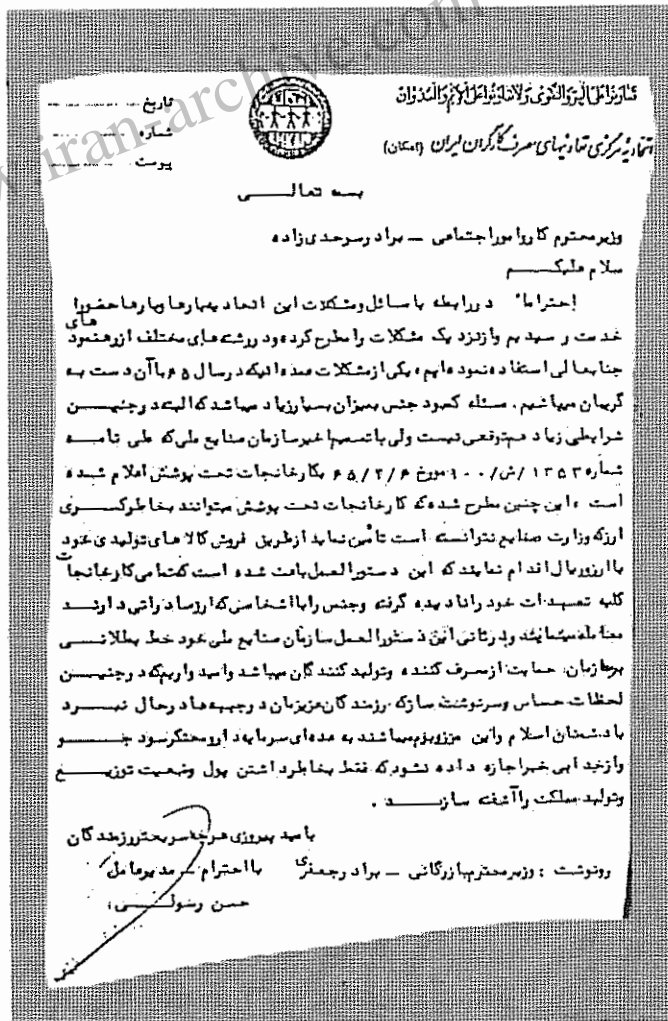 تعاونوا علی البر والتقوی ولا تعاونوا علی الاثم والعدوان
اتحادیه مرکزی تعاونیهای مصرف کارگران ایران (امکان)
تاریخ
شماره
پیوست
بسمه تعالـــی
وزیر محترم کار و امور اجتماعی - برادر سرحدی زاده
سلام علیکـــم
احتراما" در رابطه با مسائل و مشکلات این اتحادیه بارها و بارها حضورا
خدمت رسیدیم و از نزدیک مشکلات را مطرح کرده و در رشته های مختلف از رهنمود های
جنابعالی استفاده نموده ایم، یکی از مشکلات عمده ایکه در سال ۶۵ با آن دست به
گریبان میباشیم . مسئله کمبود جنس بمیزان بسیار زیاد میباشد که البته در چنیـــن
شرایطی زیاد هم توقعی نیست ولی با تصمیم اخیر سازمان صنایع ملی که طی نامـه
شماره ۱۳۵۳/ش/۹۰۰ مورخ ۶۵/۲/۶ بکارخانجات تحت پوشش اعلام شده
است ، این چنین مطرح شده که کارخانجات تحت پوشش میتوانند بخاطر کسـری
ارزکه وزارت صنایع نتوانسته است تأمین نماید از طریق فروش کالاهای تولیدی خود
با ارز و ریال اقدام نمایند که این دستورالعمل باعث شده است که تمامی کارخانجات
کلیه تعهدات خود را نادیده گرفته و جنس را با اشخاصی که ارز صادراتی دارنـد
معامله مینمایند و در ثانی این دستورالعمل سازمان صنایع ملی خود خط بطلانـــی
بر سازمان حمایت از مصرف کننده و تولید کنندگان میباشد و امیدواریم که در چنیـــن
لحظات حساس و سرنوشت ساز که رزمندگان عزیزمان در جبهه ها در حال نبـــرد
با دشمنان اسلام و این مرز و بوم میباشند به عده ای سرمایه دار و محتکر سود جـــو
و از خدا بی خبر اجازه داده نشود که فقط بخاطر داشتن پول وضعیت توزیـــع
و تولید مملکت را آشفته سازنـــد .
با امید پیروزی هر چه سریعتر رزمندگان
رونوشت : وزیر محترم بازرگانی - برادر جعفری
با احترام - مدیر عامل
حسن رسولـــی
www.iran-archive.com